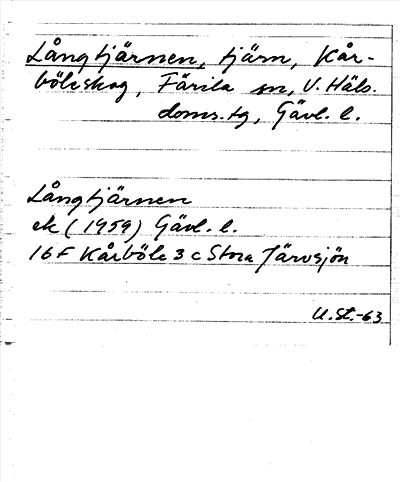 Långtjärnen, tjärn, Kår-
böleskog, Färila sn, V. Häls.
doms.tg, Gävl. l.
Långtjärnen
ek (1959) Gävl. l.
16 F Kårböle 3 c Stora Järvsjön
U.St.-63